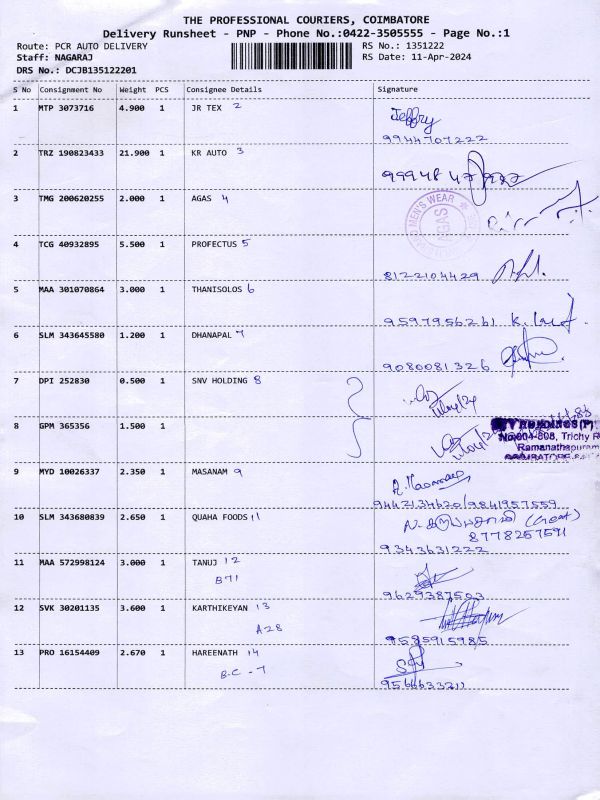 THE PROFESSIONAL COURIERS, COIMBATORE
Delivery Runsheet - PNP - Phone No.:0422-3505555 - Page No.:1
Route: PCR AUTO DELIVERY
RS No.: 1351222
Staff: NAGARAJ
RS Date: 11-Apr-2024
DRS No.: DCJB135122201
S No Consignment No Weight PCS Consignee Details Signature
1 MTP 3073716 4.900 1 JR TEX 2
Jeffry
9944707222
2 TRZ 190823433 21.900 1 KR AUTO 3
3 TMG 200620255 2.000 1 AGAS 4
MEN'S WEAR
AGAS
4 TCG 40932895 5.500 1 PROFECTUS 5
8122104429
5 MAA 301070864 3.000 1 THANISOLOS 6
9597956261
6 SLM 343645580 1.200 1 DHANAPAL 7
9080081326
7 DPI 252830 0.500 1 SNV HOLDING 8
8 GPM 365356 1.500 1
No.604-608, Trichy R
Ramanathapuram
9 MYD 10026337 2.350 1 MASANAM 9
9442134620/9841957559
10 SLM 343680839 2.650 1 QUAHA FOODS 11
8778257591
9343631222
11 MAA 572998124 3.000 1 TANUJ 12
B71
9629387503
12 SVK 30201135 3.600 1 KARTHIKEYAN 13
A28
9585915985
13 PRO 16154409 2.670 1 HAREENATH 14
B.C - 7
9566633211